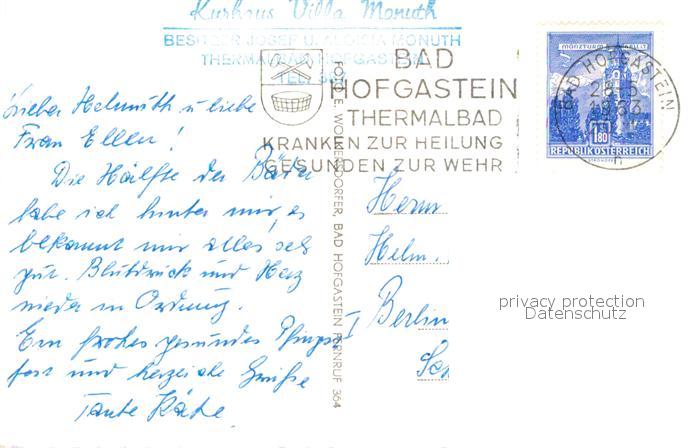 Kurhaus Villa Monuth
BESITZER JOSEF U. ALOISIA MONUTH
THERMALBAD HOFGASTEIN
TEL.
BAD
HOFGASTEIN
THERMALBAD
KRANKEN ZUR HEILUNG
GESUNDEN ZUR WEHR
BAD HOFGASTEIN
28.-5.
MÜNZTURM
1.80
REPUBLIK ÖSTERREICH
Lieber Helmuth u liebe
Frau Ellen!
Die Hälfte der Bäder
habe ich hinter mir, es
bekommt mir alles sehr
gut. Blutdruck und Herz
wieder in Ordnung.
Ein frohes gesundes Pfingst
fest und herzliche Grüße
Tante Käte.
FOTO E. WOLKERSDORFER, BAD HOFGASTEIN FERNRUF 364
Herrn
Helm.
Berlin
privacy protection
Datenschutz